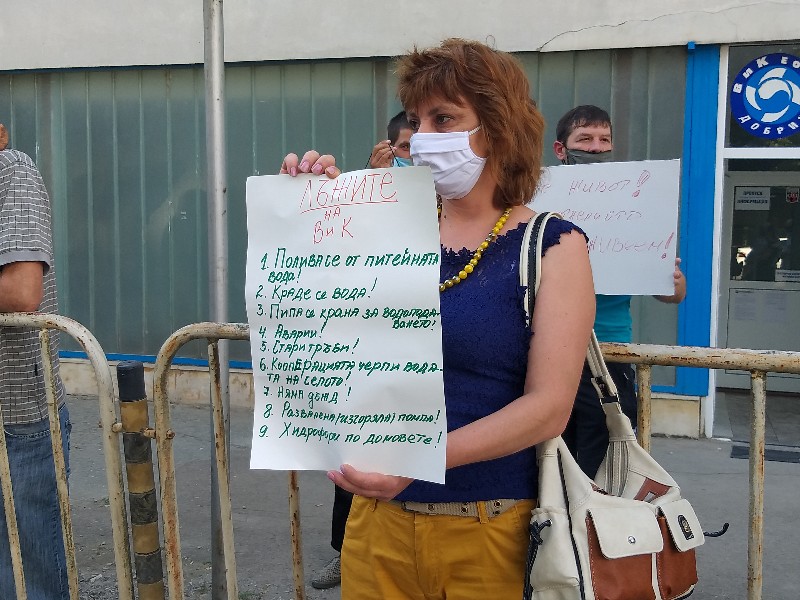 ЛЪЖИТЕ
НА
ВиК
1. ПОЛИВА СЕ ОТ ПИТЕЙНАТА
ВОДА!
2. КРАДЕ СЕ ВОДА!
3. ПИПА СЕ КРАНА ЗА ВОДОПОДА-
ВАНЕТО!
4. АВАРИИ!
5. СТАРИ ТРЪБИ!
6. КООПЕРАЦИЯТА ЧЕРПИ ВОДА-
ТА НА СЕЛОТО!
7. НЯМА ДЪЖД!
8. РАЗВАЛЕНА (ИЗГОРЯЛА) ПОМПА!
9. ХИДРОФОРИ ПО ДОМОВЕТЕ!
ЖИВОТ!
ЖИВЕЕМ!
ВиК ЕО
ДОБРИ